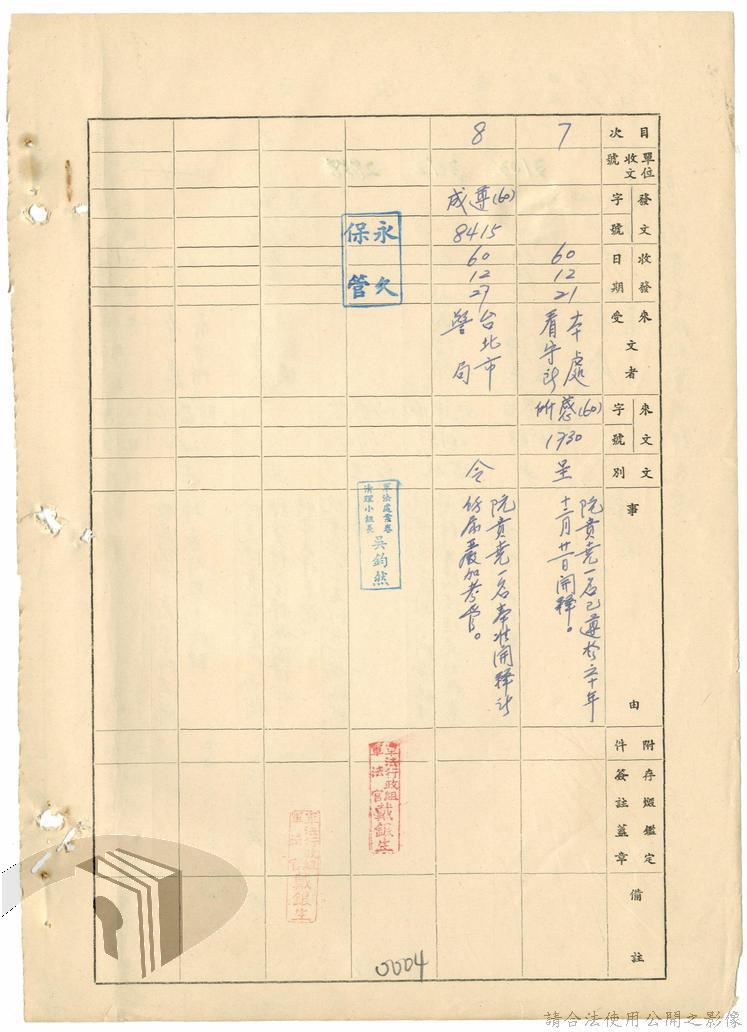 目次
單位收文號
發文字號
收發日期
來受文者
來文字號
文別
事由
附件
存燬鑑定簽註蓋章
備註
7
60
12
21
本處
看守所
(60)
1730
呈
阮貴堯一名已遵於六十年
十二月廿一日開釋。
8
(60)
遵成
8415
60
12
27
台北市
警局
令
阮貴堯一名奉准開釋
飭屬嚴加考管。
永久
保管
軍法處業務
清理小組長
吳鈞然
軍法行政組
軍法官戴銀生
軍法行政組
軍法官戴銀生
0004
請合法使用公開之影像